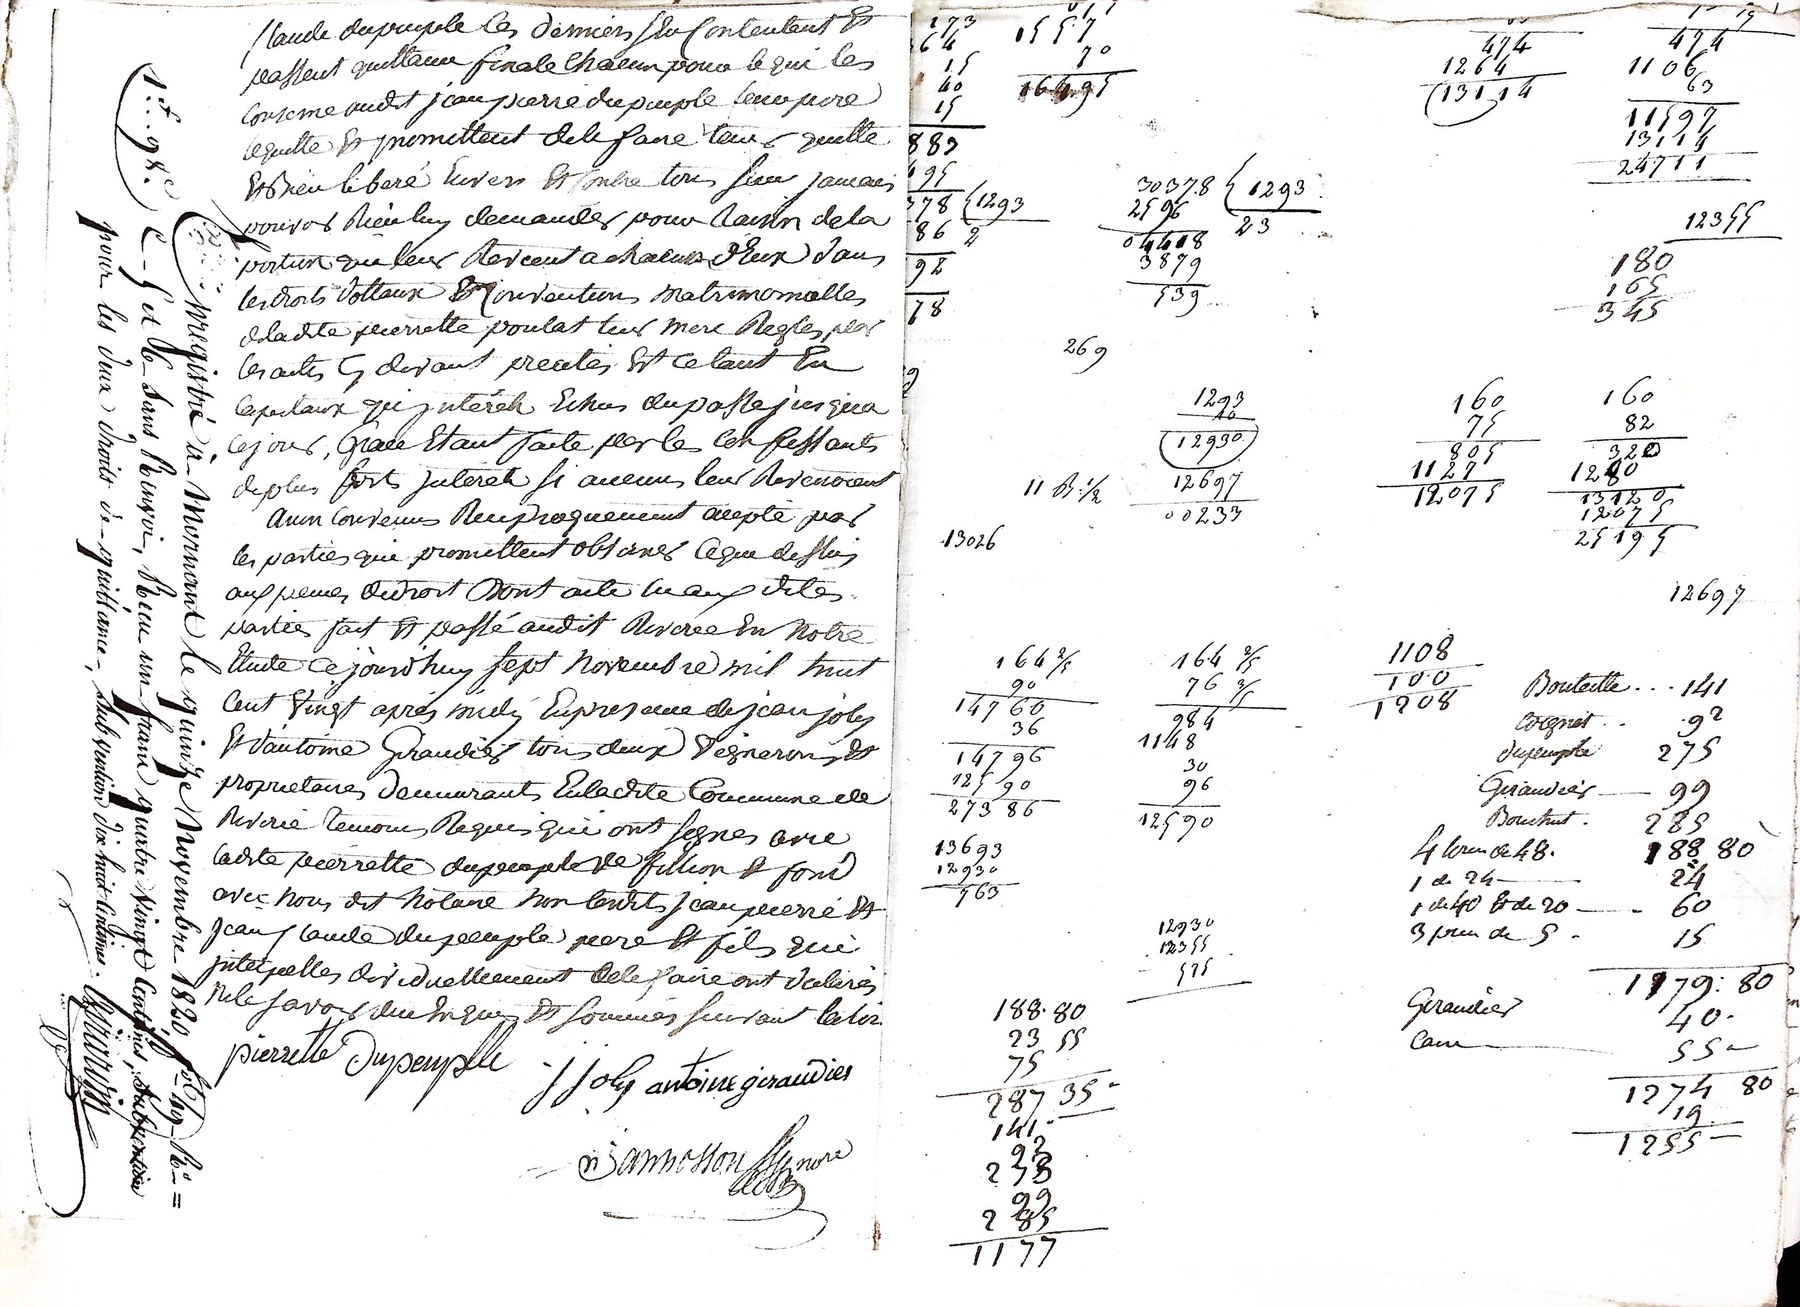 Claude dupeuple les derniers s'en Contentent Et
passent quittance finale Chacun pour ce qui les
Concerne audit jean pierre dupeuple leur pere
quitte Et promettent de le faire tenir quitte
Et Bien liberé Envers Et Contre tous sans jamais
pouvoir Rien luy demander pour Raison de la
portion qui leur Revient a chacun d'Eux dans
les droits dottaux Et Conventions matrimonialles
de ladite pierrette poulat leur mere Regles par
les actes cy devant precités Et ce tant En
Capitaux qu'jnterêts Echus du passé jusqu'a
ce jour, Grace Etant faite par les Confessants
de plus forts jnterêts si aucuns leur Revenoient
Ainsi Convenus Reciproquement accepté par
les parties qui promettent observer Ce que dessus
aux peines de droit Dont acte lu aux dites
parties fait Et passé audit Riverie En notre
Etude Ce jourd'huy sept Novembre mil huit
Cent Vingt après midy En presence de jean joly
Et d'antoine Giraudier tous deux Vignerons Et
proprietaires Demeurants En ladite Commune de
Riverie temoins Requis qui ont signés avec
ladite pierrette dupeuple
avec Nous dit Notaire non lesdits jean pierre Et
jean Claude dupeuple pere Et fils qui
jnterpellés dividuellement de le faire ont déclarés
Ne le savoir du Enquis Et sommés suivant la loi
pierrette Dupeuple
J joly antoine giraudier
Enregistré à Mornant le quinze Novembre 1820 f.° 49 R.°
C. 5 et 6 sans Renvoi, Reçu un franc quatre Vingt Centimes, Subvention
pour les deux droits de quittance, Subvention dix huit Centimes.
173
64
15
40
15
883
1557
70
16495
474
1264
13114
474
1106
63
11597
13114
24711
495
378 1293
86 2
92
78
30378 1293
2596 23
04418
3879
539
12355
180
165
345
269
1293
10
12930
12697
00233
11 B: 1/2
13026
160
75
805
1127
12075
160
82
320
1280
13120
12075
25195
12697
164 2/5
90
14760
36
14796
12590
27386
164 2/5
76 3/5
984
1148
30
96
12590
1108
100
1208
13693
12930
763
12930
12355
575
Bouteille ... 141
Cognet .. 92
dupeuple 275
Giraudier — 99
Bouchut . 285
4 louis de 48. 188 80
1 de 24 — 24
1 de 40 Et de 20 — 60
3 pieces de 5 - 15
1179: 80
Giraudier 40.
55 —
1274 80
19.
1255 —
188.80
23 55
75
287 35
141
92
275
99
285
1177